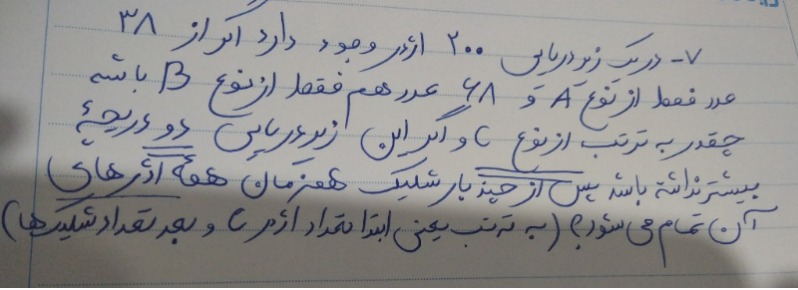 ۷- در یک زیردریایی ۲۰۰ اژدر وجود دارد اگر از ۳۸
عدد فقط از نوع A و ۶۸ عدد هم فقط از نوع B باشد
چقدر به ترتب از نوع C و اگر این زیردریایی دو دریچهٔ
بیشتر نداشته باشد پس از چند بار شلیک همزمان همهٔ اژدرهای
آن تمام می شود؟ (به ترتب یعنی ابتدا تعداد اژدر C و بعد تعداد شلیک ها)